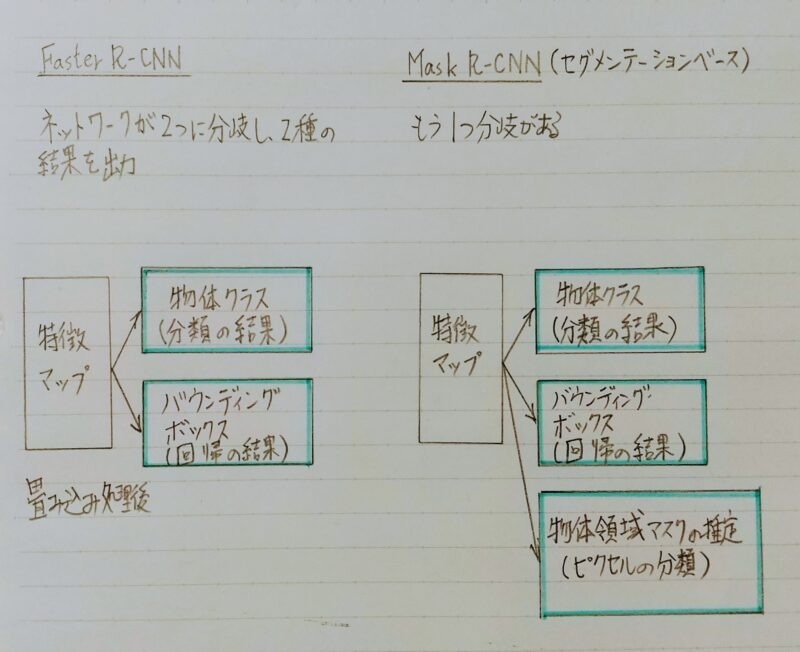 Faster R-CNN
ネットワークが2つに分岐し、2種の
結果を出力
特徴
マップ
物体クラス
(分類の結果)
バウンディング
ボックス
(回帰の結果)
畳み込み処理後
Mask R-CNN (セグメンテーションベース)
もう1つ分岐がある
特徴
マップ
物体クラス
(分類の結果)
バウンディング
ボックス
(回帰の結果)
物体領域マスクの推定
(ピクセルの分類)